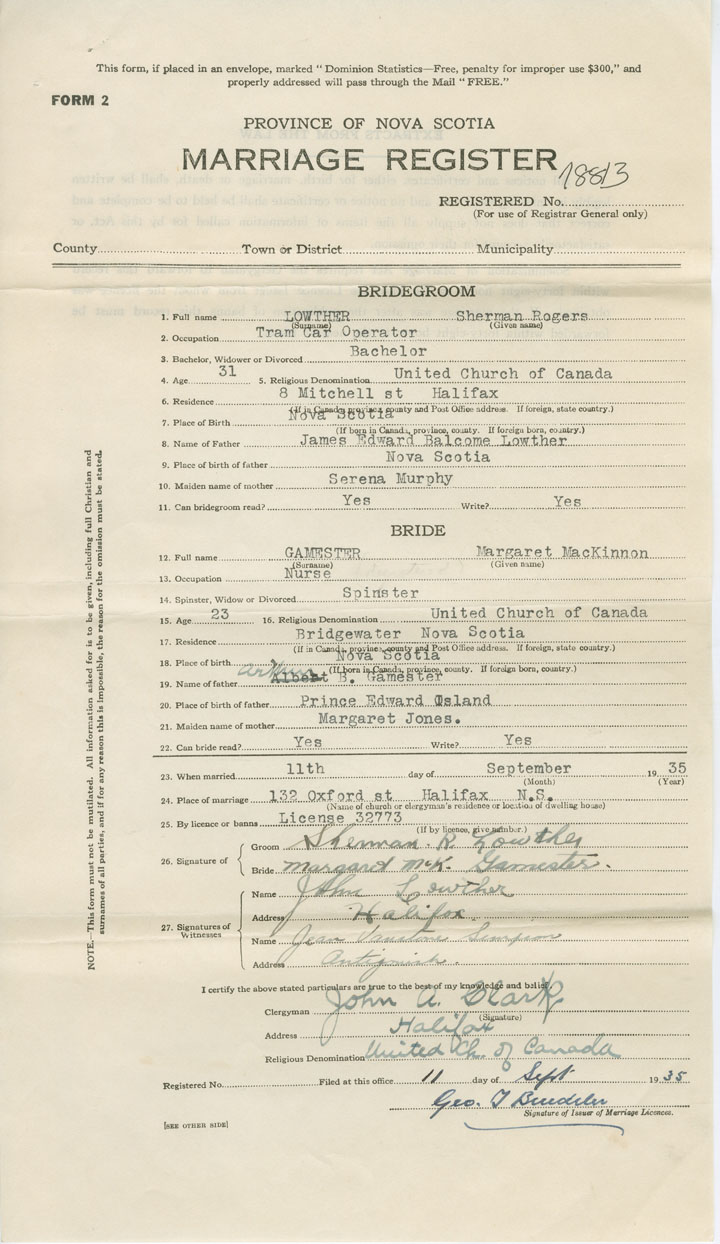 This form, if placed in an envelope, marked "Dominion Statistics—Free, penalty for improper use $300," and
properly addressed will pass through the Mail "FREE."
FORM 2
PROVINCE OF NOVA SCOTIA
MARRIAGE REGISTER
18813
REGISTERED No.
(For use of Registrar General only)
County Town or District Municipality
BRIDEGROOM
1. Full name LOWTHER Sherman Rogers
(Surname) (Given name)
2. Occupation Tram Car Operator
3. Bachelor, Widower or Divorced Bachelor
4. Age 31 5. Religious Denomination United Church of Canada
6. Residence 8 Mitchell st Halifax
(If in Canada, province, county and Post Office address. If foreign, state country.)
7. Place of Birth Nova Scotia
(If born in Canada, province, county. If foreign born, country.)
8. Name of Father James Edward Balcome Lowther
9. Place of birth of father Nova Scotia
10. Maiden name of mother Serena Murphy
11. Can bridegroom read? Yes Write? Yes
BRIDE
12. Full name GAMESTER Margaret MacKinnon
(Surname) (Given name)
13. Occupation Nurse
14. Spinster, Widow or Divorced Spinster
15. Age 23 16. Religious Denomination United Church of Canada
17. Residence Bridgewater Nova Scotia
(If in Canada, province, county and Post Office address. If foreign, state country.)
18. Place of birth Nova Scotia
(If born in Canada, province, county. If foreign born, country.)
19. Name of father Arthur Albert B. Gamester
20. Place of birth of father Prince Edward Osland
21. Maiden name of mother Margaret Jones.
22. Can bride read? Yes Write? Yes
23. When married 11th day of September 1935
(Month) (Year)
24. Place of marriage 132 Oxford st Halifax N.S.
(Name of church or clergyman's residence or location of dwelling house)
25. By licence or banns License 32773
(If by licence, give number.)
26. Signature of
Groom Sherman. R. Lowther
Bride Margaret McK. Gamester.
27. Signatures of Witnesses
Name John Lowther
Address Halifax.
Name Jean Simpson
Address Antigonish.
I certify the above stated particulars are true to the best of my knowledge and belief.
Clergyman John A. Clark
(Signature)
Address Halifax
Religious Denomination United Ch. of Canada
Registered No. Filed at this office 11 day of Sept 1935
Geo. T
Signature of Issuer of Marriage Licences.
[SEE OTHER SIDE]
NOTE.—This form must not be mutilated. All information asked for is to be given, including full Christian and
surnames of all parties, and if for any reason this is impossible, the reason for the omission must be stated.